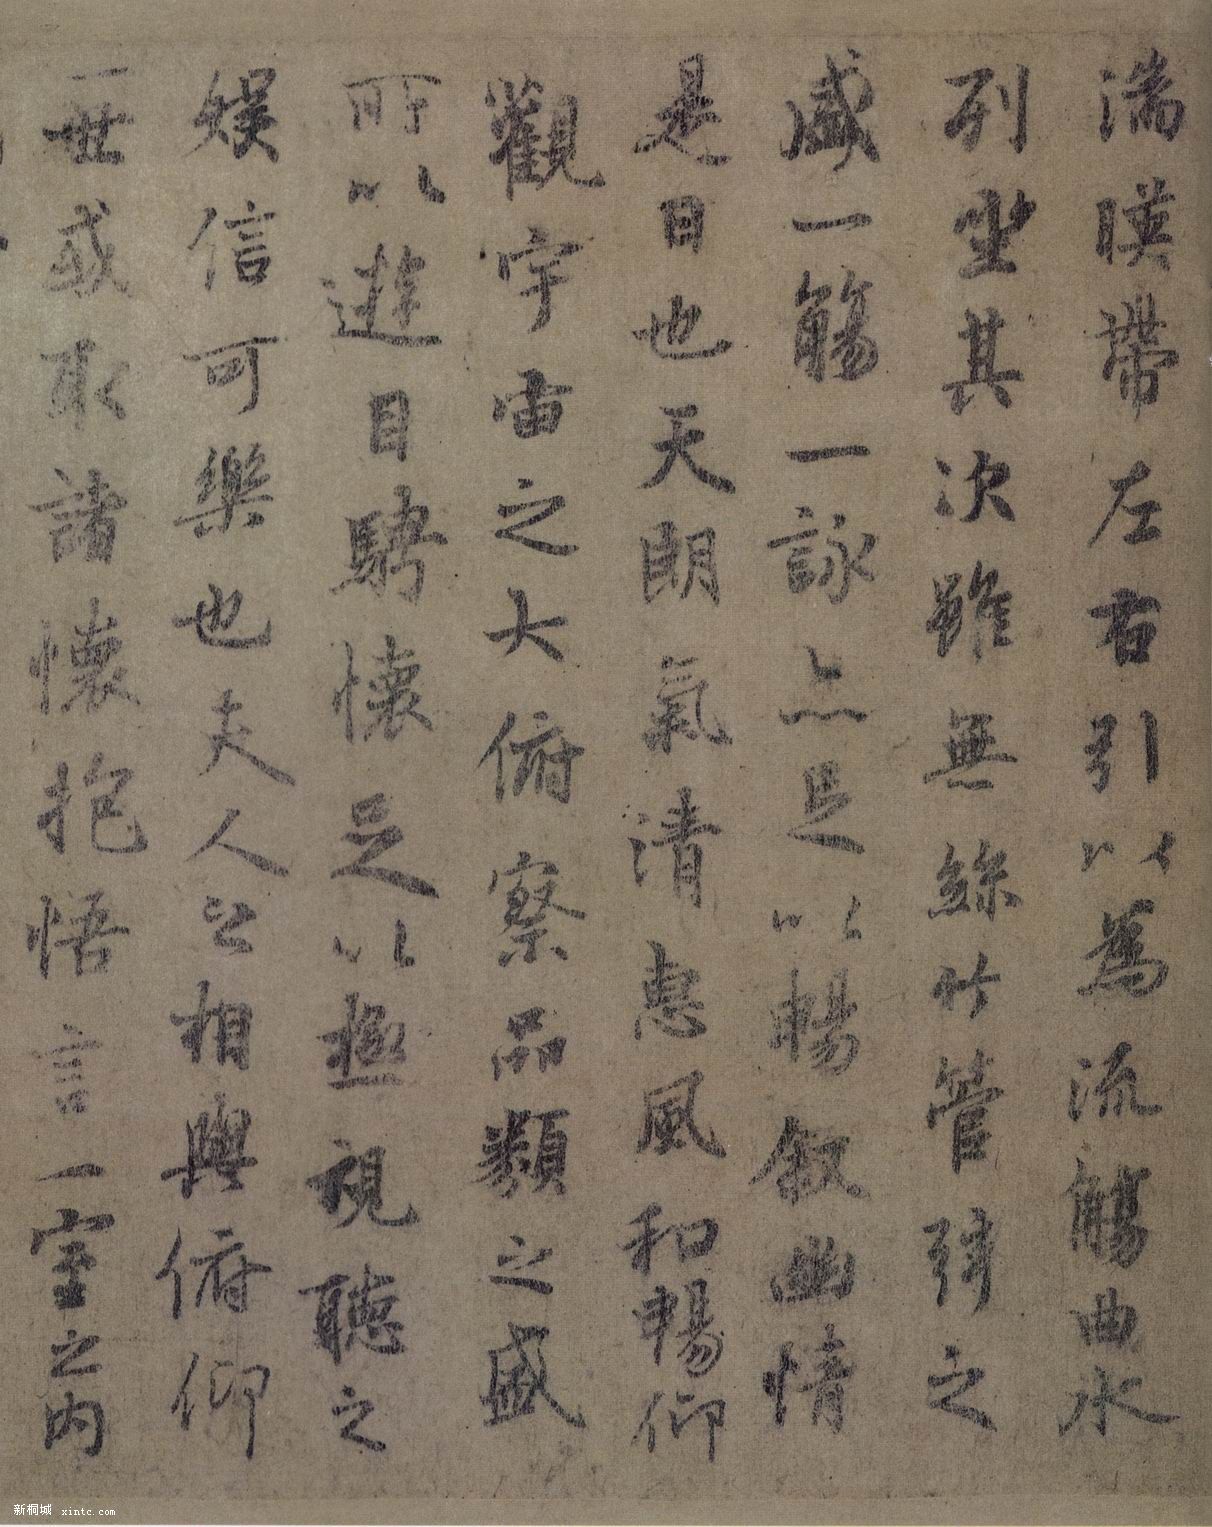 湍暎帶左右引以為流觴曲水
列坐其次雖無絲竹管弦之
盛一觴一詠亦足以暢敘幽情
是日也天朗氣清惠風和暢仰
觀宇宙之大俯察品類之盛
所以遊目騁懷足以極視聽之
娛信可樂也夫人之相與俯仰
一世或取諸懷抱悟言一室之內
新桐城 xintc.com